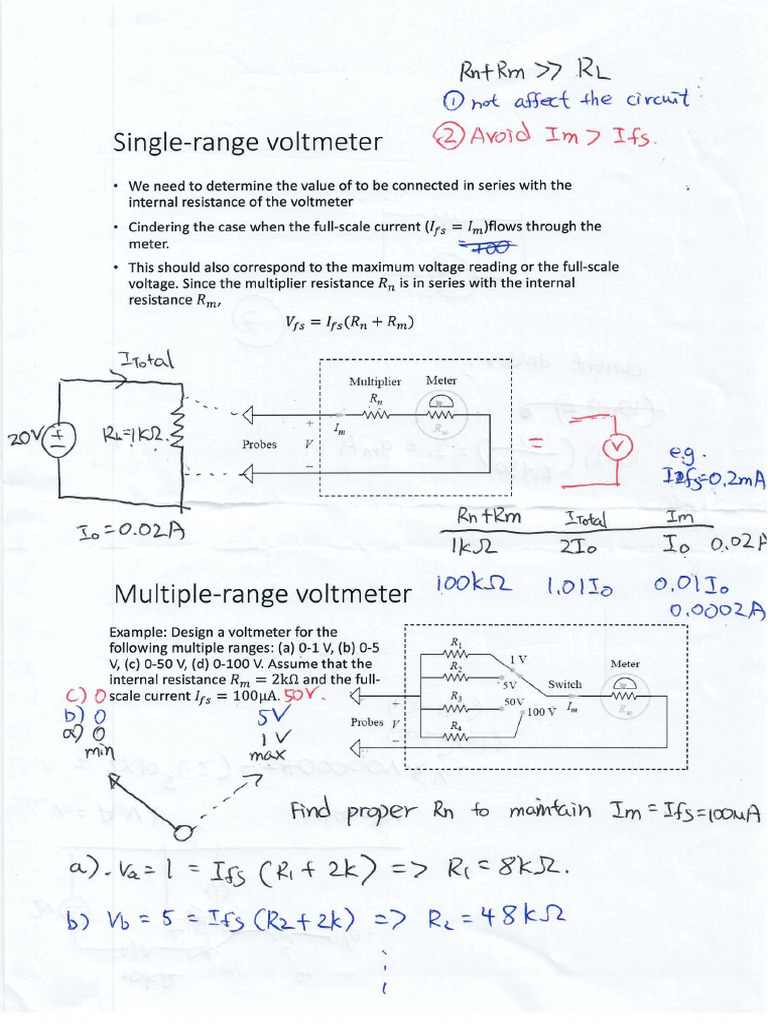 Rn+Rm >> RL
① not affect the circuit
② Avoid Im > Ifs.
Single-range voltmeter
• We need to determine the value of to be connected in series with the
internal resistance of the voltmeter
• Cindering the case when the full-scale current (Ifs = Im)flows through the
meter.
• This should also correspond to the maximum voltage reading or the full-scale
voltage. Since the multiplier resistance Rn is in series with the internal
resistance Rm,
Vfs = Ifs(Rn + Rm)
ITotal
Multiplier Meter
Rn
Rm
Im
20V
=1kΩ.
+
Probes V
−
=
V
e.g.
Ifs=0.2mA
Io=0.02A
Rn+Rm ITotal Im
1kΩ 2Io Io 0.02A
100kΩ 1.01Io 0.01Io
0.0002A
Multiple-range voltmeter
Example: Design a voltmeter for the
following multiple ranges: (a) 0-1 V, (b) 0-5
V, (c) 0-50 V, (d) 0-100 V. Assume that the
internal resistance Rm = 2kΩ and the full-
scale current Ifs = 100µA.
R1
R2
R3
R4
1 V
5V
50V
100 V
Switch
Im
Meter
Rm
+
Probes V
−
c) 0 50V.
b) 0 5V
a) 0 1V
min max
Find proper Rn to maintain Im = Ifs=100µA
a). Va = 1 = Ifs (R1 + 2k) => R1 = 8kΩ.
b) Vb = 5 = Ifs (R2 + 2k) => R2 = 48kΩ